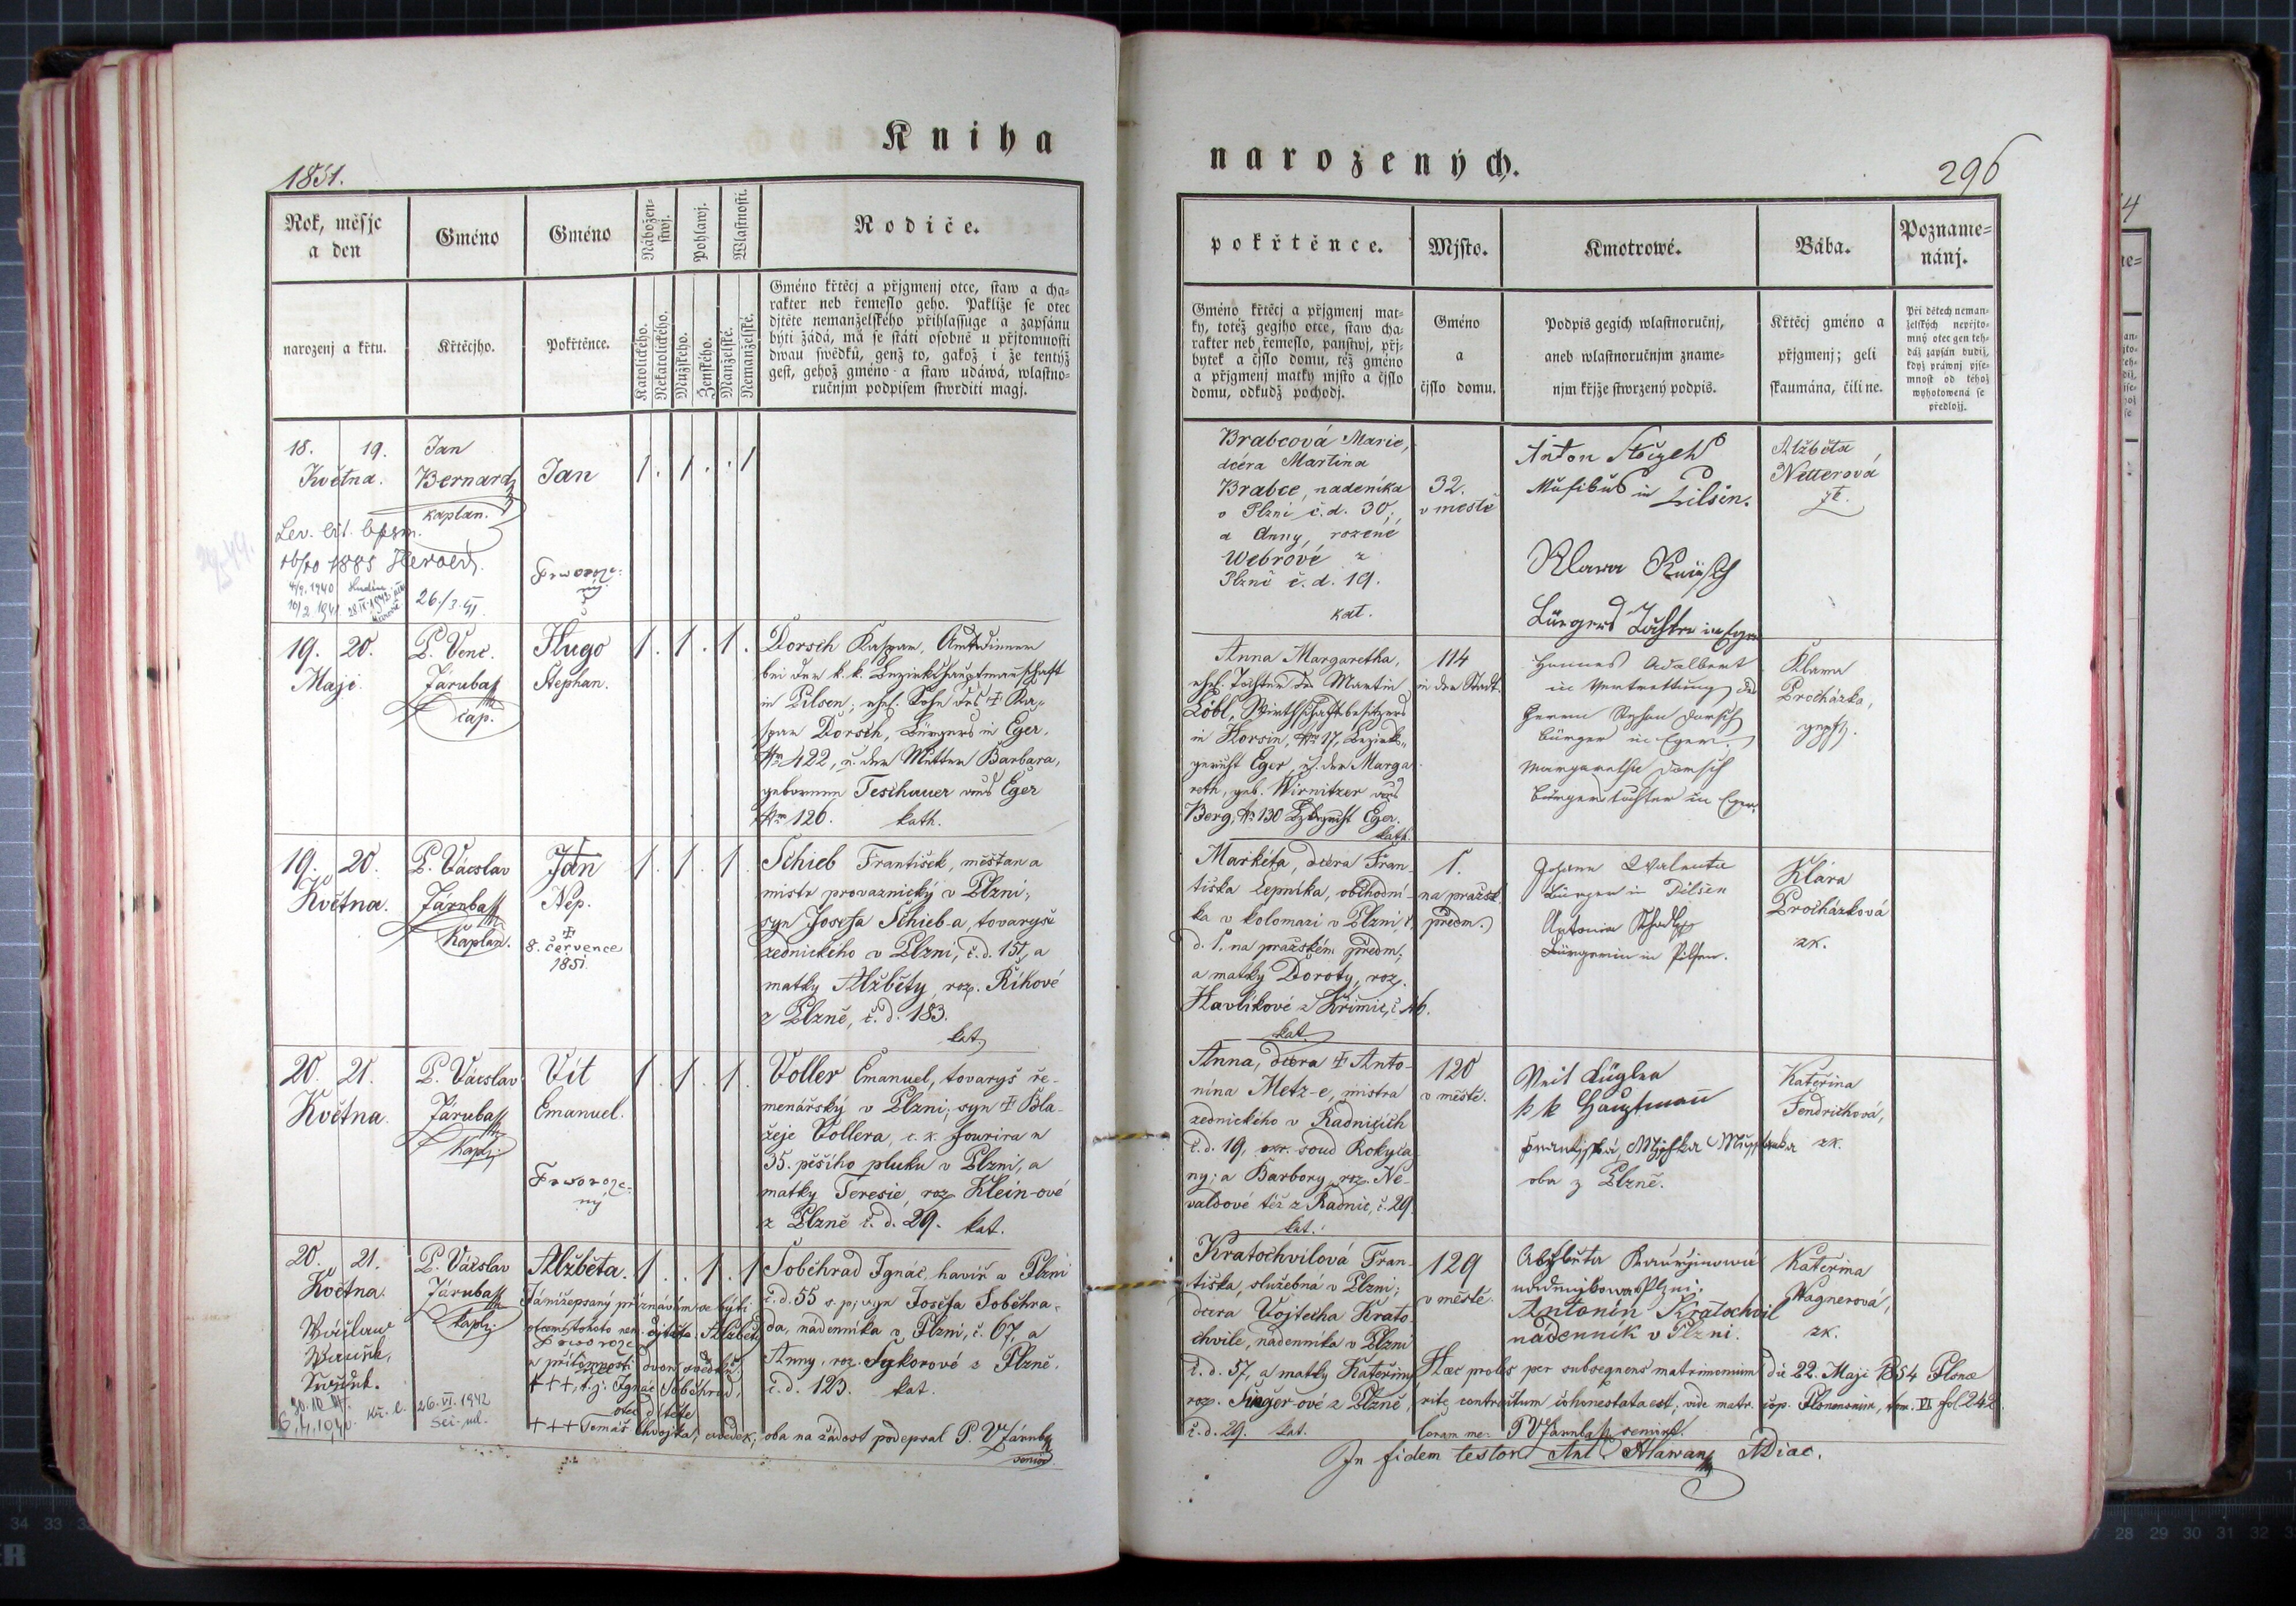 Kniha
1851.
Rok, měsjc
a den
Gméno
Gméno
Nábožen-
stwj.
Pohlawj.
Wlastnosti.
Rodiče.
narozenj a křtu.
Křtěcjho.
Pokřtěnce.
Katolického.
Nekatolického.
Mužského.
Ženského.
Manželské.
Nemanželské.
Gméno křtěcj a přjgmenj otce, staw a cha-
rakter neb řemeslo geho. Pakliže se otec
djtěte nemanželského přihlassuge a zapsánu
býti žádá, má se státi osobně u přjtomnosti
dwau swědků, genž to, gakož i že tentýž
gest, gehož gméno a staw udáwá, wlastno-
ručnjm podpisem stwrditi magj.
18. 19.
Května.
Jan
Bernard
kaplan.
Jan
1. 1. . 1
26./3. VI.
19. 20.
Maji.
P. Venc.
Járuba
cap.
Hugo
Stephan.
1. 1. 1.
Dorsch Kaspar, Amtsdiener
bei der k. k. Bezirkshauptmannschaft
in Pilsen; ehel. Sohn des ‡ Ka-
spar Dorsch, Bürgers in Eger,
Nr 422, u. der Mutter Barbara,
geborenen Teschauer aus Eger
Nr 126. kath.
19. 20.
Května.
P. Václav
Járuba
Kaplan.
Jan
Nep.
‡
8. července
1851.
1. 1. 1.
Schieb František, měšťan a
mistr provaznický v Plzni;
syn Josefa Schieb-a, tovaryše
zednického v Plzni, č. d. 151, a
matky Alžběty, roz. Říhové
z Plzně, č. d. 183.
kat.
20. 21.
Května.
P. Václav
Járuba
Kapl.
Vít
Emanuel.
1. 1. 1.
Voller Emanuel, tovaryš ře-
menářský v Plzni; syn ‡ Bla-
žeje Vollera, c. k. fourira u
35. pěšího pluku v Plzni, a
matky Teresie, roz. Klein-ové
z Plzně č. d. 29. kat.
20. 21.
Května.
P. Václav
Járuba
kapl.
Alžběta.
1. . 1. 1
Soběhrad Ignác, havíř v Plzni
č. d. 55 syn Josefa Soběhra-
da, nádenníka v Plzni, č. 67, a
Anny, roz. Sykorové z Plzně,
č. d. 123. kat.
Já nížepsaný přiznávám se býti
otcem tohoto nem. dítěte Alžběty
v přítomnosti dvou svědků
+++, t. j. Ignác Soběhrad,
otec dítěte
26. VI. 1942
+++ Tomáš Chvojka, svědek, oba na žádost podepsal P. V Járuba
senior.
narozených.
296
pokřtěnce.
Mjsto.
Kmotrowé.
Bába.
Pozname-
nánj.
Gméno křtěcj a přjgmenj mat-
ky, totéž gegjho otce, staw cha-
rakter neb řemeslo, panstwj, přj-
bytek a čjslo domu, též gméno
a přjgmenj matky mjsto a čjslo
domu, odkudž pochodj.
Gméno
a
čjslo domu.
Podpis gegich wlastnoručnj,
aneb wlastnoručnjm zname-
njm křjže stwrzený podpis.
Křtěcj gméno a
přjgmenj; geli
skaumána, čili ne.
Při dětech neman-
želských nepřjto-
mný otec gen teh-
dáž zapsán budiž,
když práwnj pjse-
mnost od téhož
wyhotowená se
předložj.
Brabcová Marie,
dcera Martina
Brabce, nadeníka
v Plzni č. d. 30,
a Anny, rozené
Webrové z
Plzně č. d. 19.
kat.
32.
v mestě
Anton
Musikus in Pilsen.
Klara
Bürgers Tochter in Eger
Alžběta
Netterová
Anna Margaretha,
ehel. Tochter des Martin
Löbl, Wirthschaftsbesitzers
in Horsin, Nr 17, Bezirks-
gericht Eger, u. der Marga-
reth, geb. Wirnitzer aus
Berg, Nr 130 Bezgericht Eger.
kath.
114
in der Stadt.
Hannes Adalbert
in Vertrettung des
Herrn Stephan Dorsch
Bürger in Eger.
Margaretha Dorsch
Bürgerstochter in Eger
Klara
Procházka,
gepft.
Markéta, dcera Fran-
tiška Lepníka, obchodní-
ka v kolomazi v Plzni č.
d. 1. na pražském předm.,
a matky Doroty, roz.
Havlíkové z Křimic, č. 46.
kat.
1.
na pražsk.
předm.
Johann Walenta
Bürger in Pilsen
Antonia
Bürgerin in Pilsen.
Klára
Procházková
zk.
Anna, dcera ‡ Anto-
nína Metz-e, mistra
zednického v Radnicích
č. d. 19, okr. soud Rokyca-
ny; a Barbory, roz. Ne-
valdové též z Radnic, č. 29.
kat.
120
v městě.
Veit Kugler
k k Hauptmann
oba z Plzně.
Kateřina
Fendrichová,
zk.
Kratochvilová Fran-
tiška, služebná v Plzni;
dcera Vojtěcha Krato-
chvile, nádenníka v Plzni
č. d. 57, a matky Kateřiny
roz. Singer-ové z Plzně,
č. d. 29. kat.
129
v městě.
Antonín Kratochvil
nádenník v Plzni.
Kateřina
Wagnerová,
zk.
Haec proles per subsequens matrimonium die 22. Maji 1854 Plsnae
rite contractum cohonestata est, vide matr. cop. Plsnensium, tom. VI fol 242.
Coram me: P V Járuba senior.
In fidem testor Ant. Hlawan ADiac.